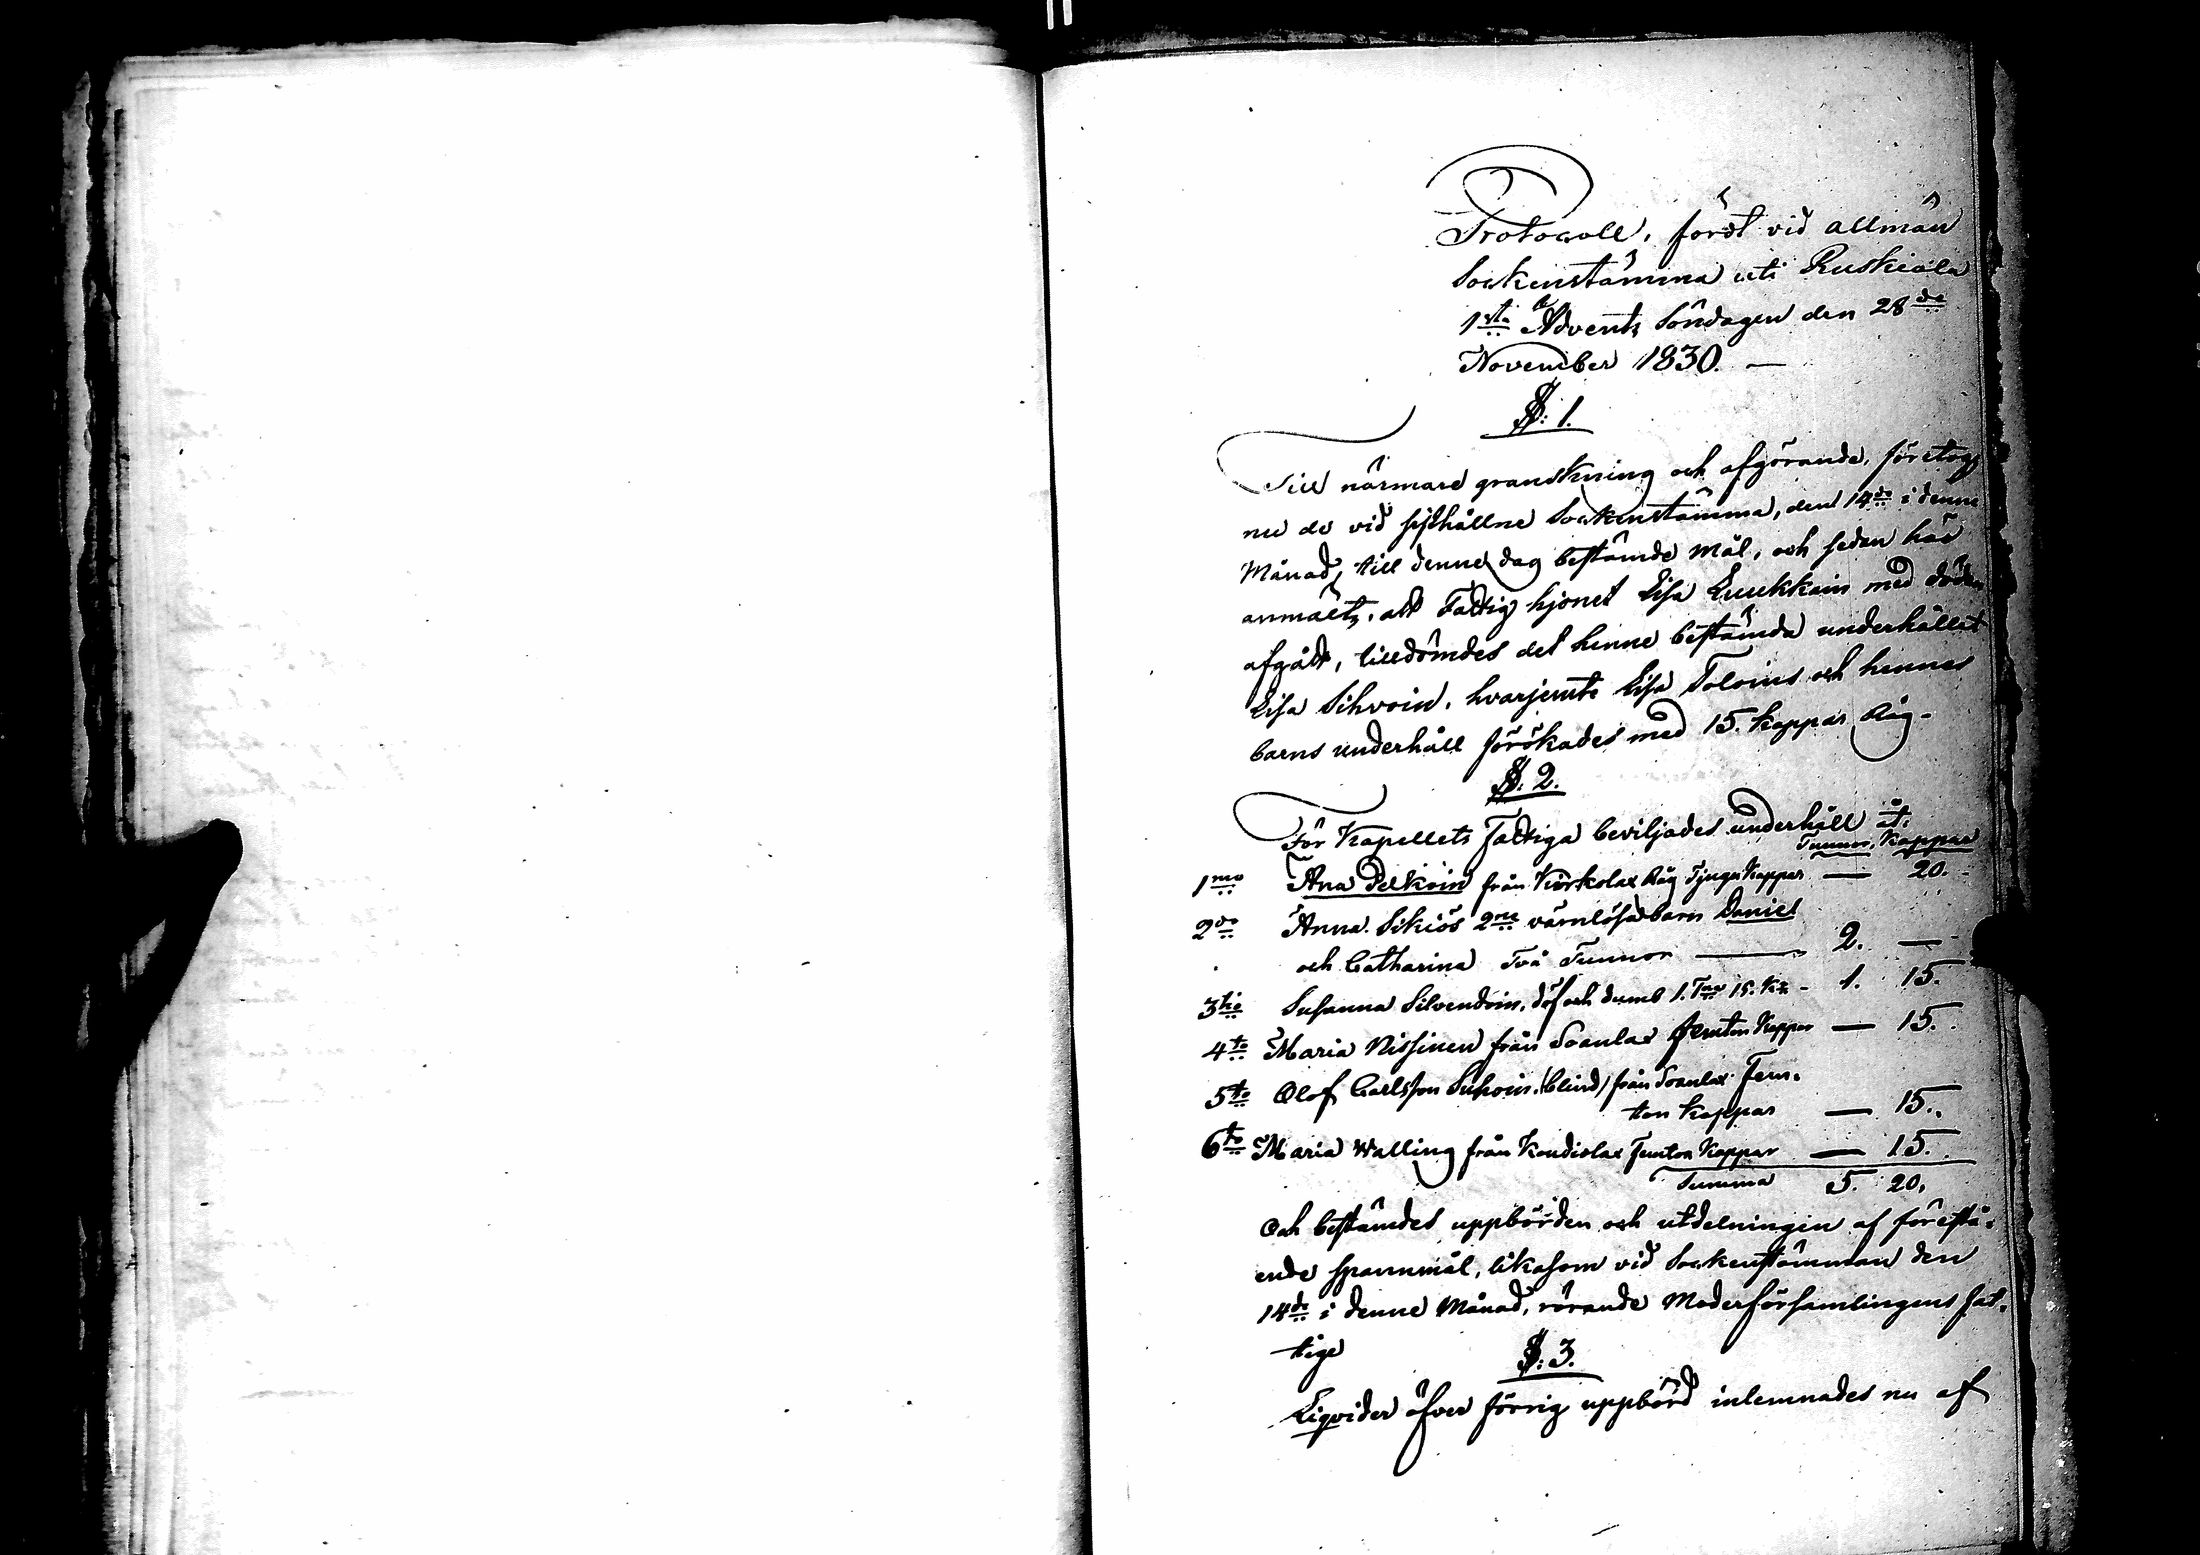 Protocoll, fördt vid allmän
Sockenstämma uti Ruskiala
1sta Advents Söndagen den 28de
November 1830. —
§: 1.
Till närmare granskning och afgörande, företogs
nu de vid sisthållne Sockenstämma, den 14de i denne
Månad, till denne dag bestämde mål, och sedan här
anmälts, att Fattig hjonet Lisa Luukkain med döden
afgått, tilldömdes det henne bestämda underhållet
Lisa Sihvoin, hvarjemte Lisa Toloins och hennes
barns underhåll förökades med 15. kappar Råg.
§: 2.
För Kapellets Fattiga beviljades underhåll åt:
Tunnor, Kappar
1mo Ana Pelkoin från Kirkolax Råg Tjugu Kappar — 20.
2do Anna Sikiös 2ne värnlösa barn Daniel
och Catharina Två Tunnor — 2. —
3tio Susanna Silvendoin, döf och dumb 1. Tna 15. Kr. - 1. 15.
4to Maria Nissinen från Soanlax femton Kappar — 15.
5to Olof Carlsson Suhoin, (blind) från Soanlax Fem-
ton Kappar — 15.
6to Maria Walling från Kondiolax Femton Kappar — 15.
Summa 5. 20.
Och bestämdes uppbörden och utdelningen af förestå-
ende spannmål, likasom vid Sockenstämman den
14de i denne Månad, rörande Moderförsamlingens fat-
tige
§: 3.
Liqvider öfver förrig uppbörd inlemnades nu af